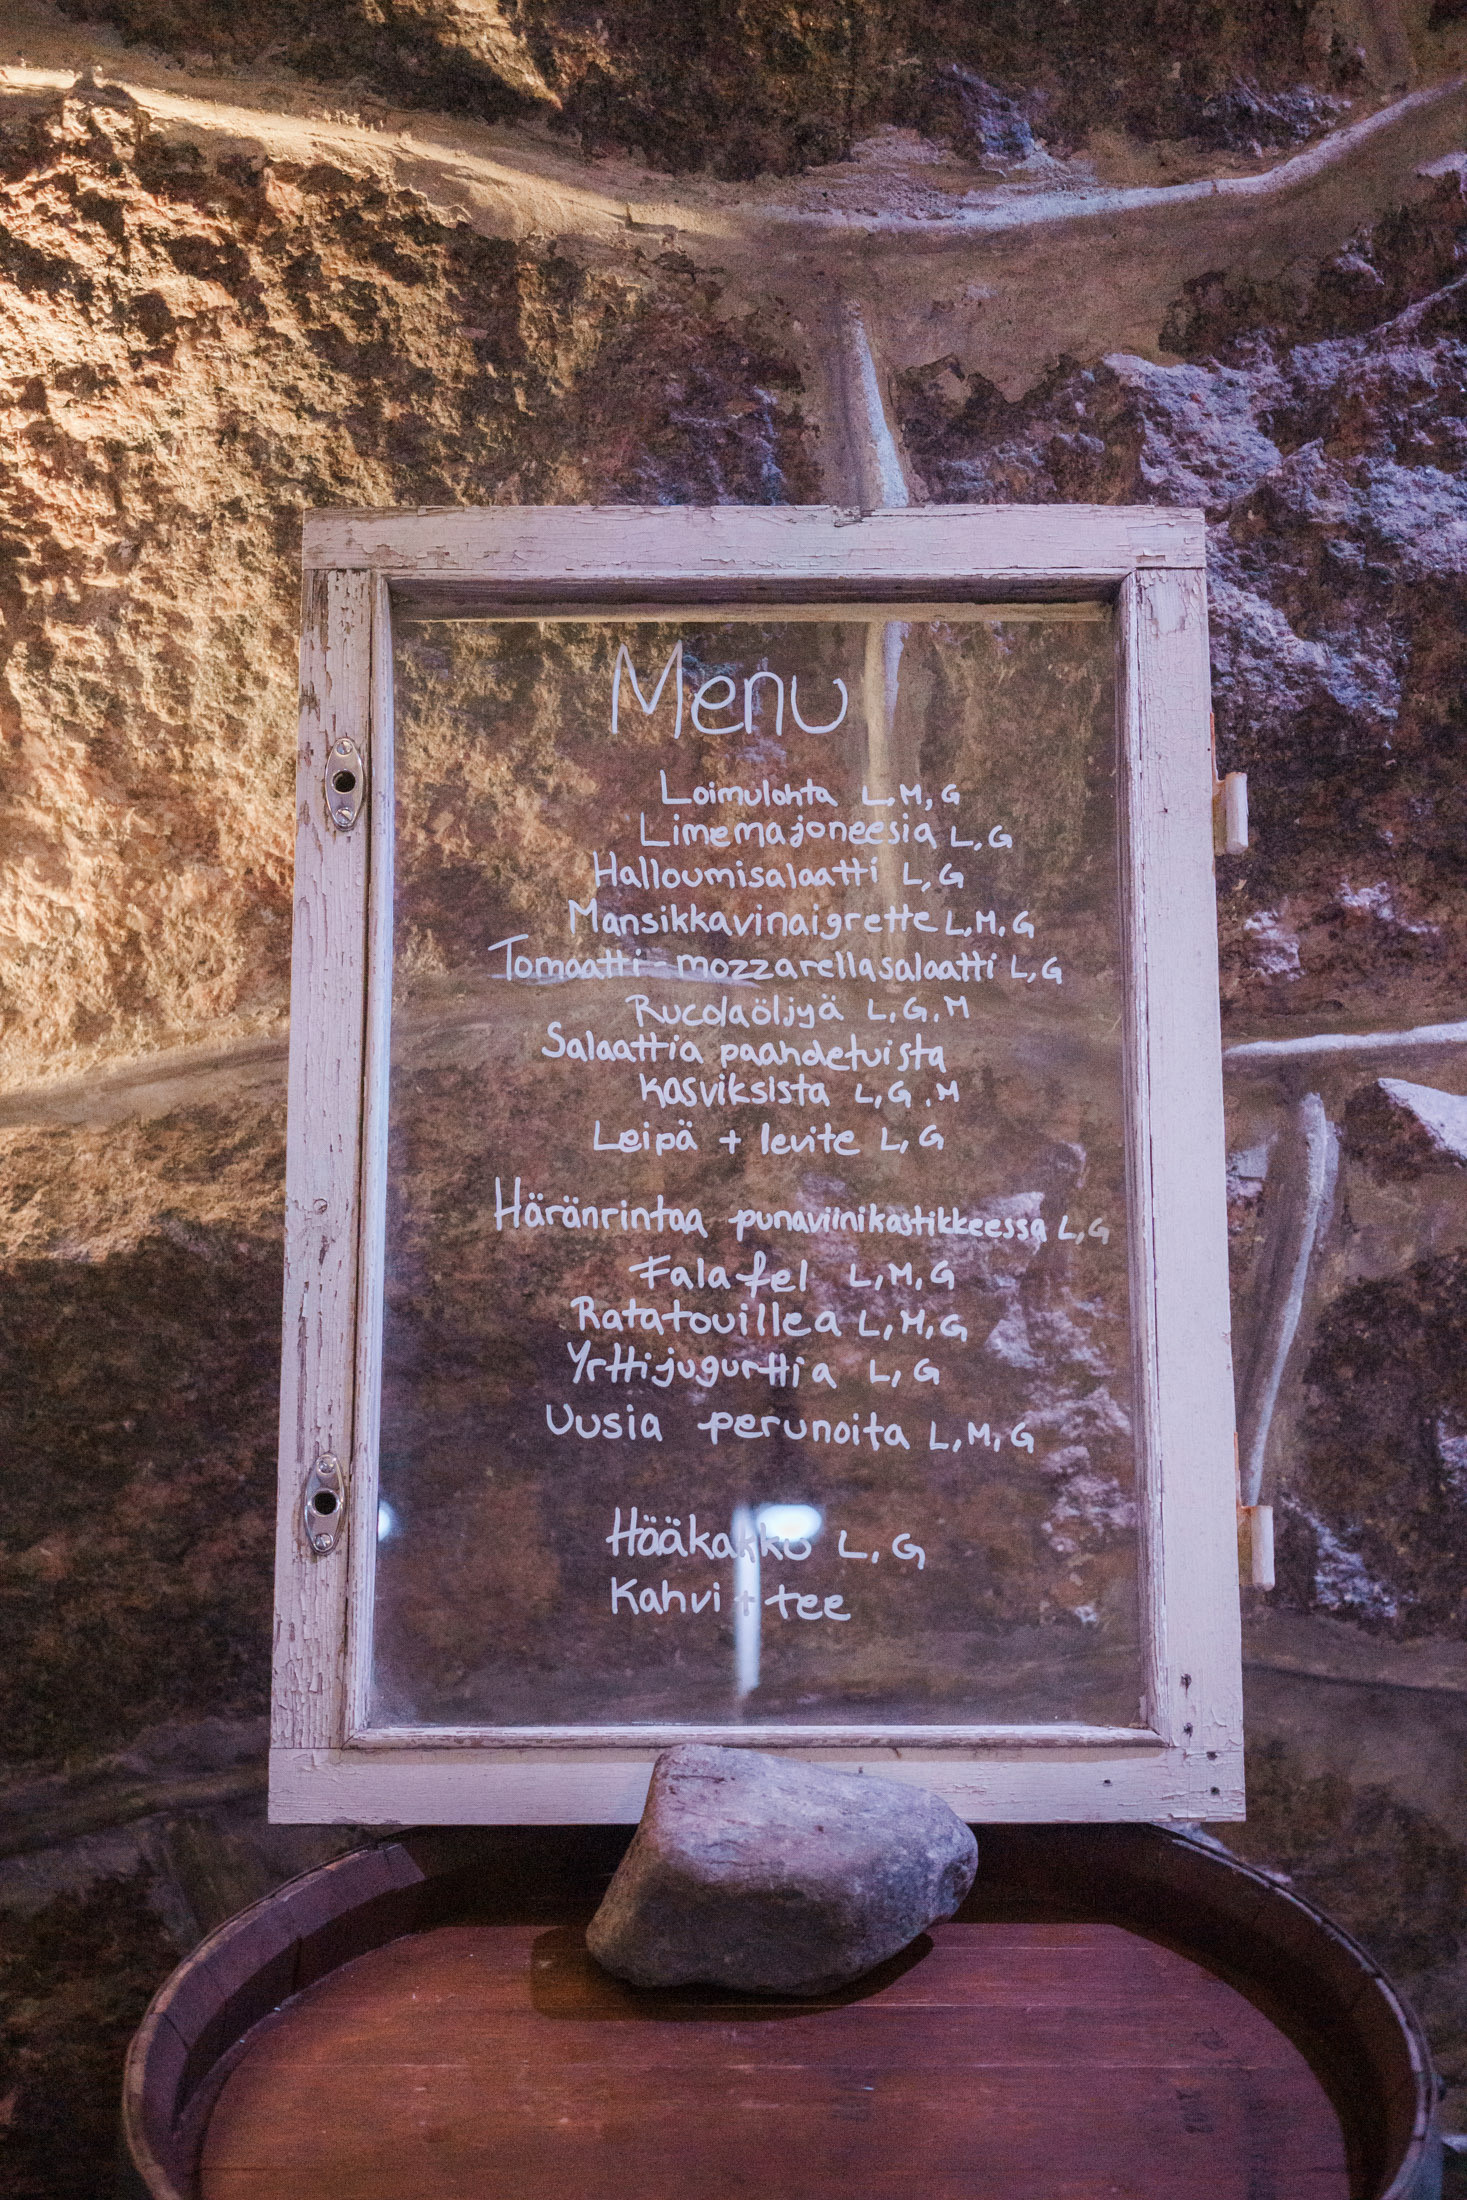 Menu
Loimulohta L, M, G
Limemajoneesia L, G
Halloumisalaatti L, G
Mansikkavinaigrette L, M, G
Tomaatti-mozzarellasalaatti L, G
Rucolaöljyä L, G, M
Salaattia paahdetuista
kasviksista L, G, M
Leipä + levite L, G
Häränrintaa punaviinikastikkeessa L, G
Falafel L, M, G
Ratatouillea L, M, G
Yrttijugurttia L, G
Uusia perunoita L, M, G
Hääkakku L, G
Kahvi + tee